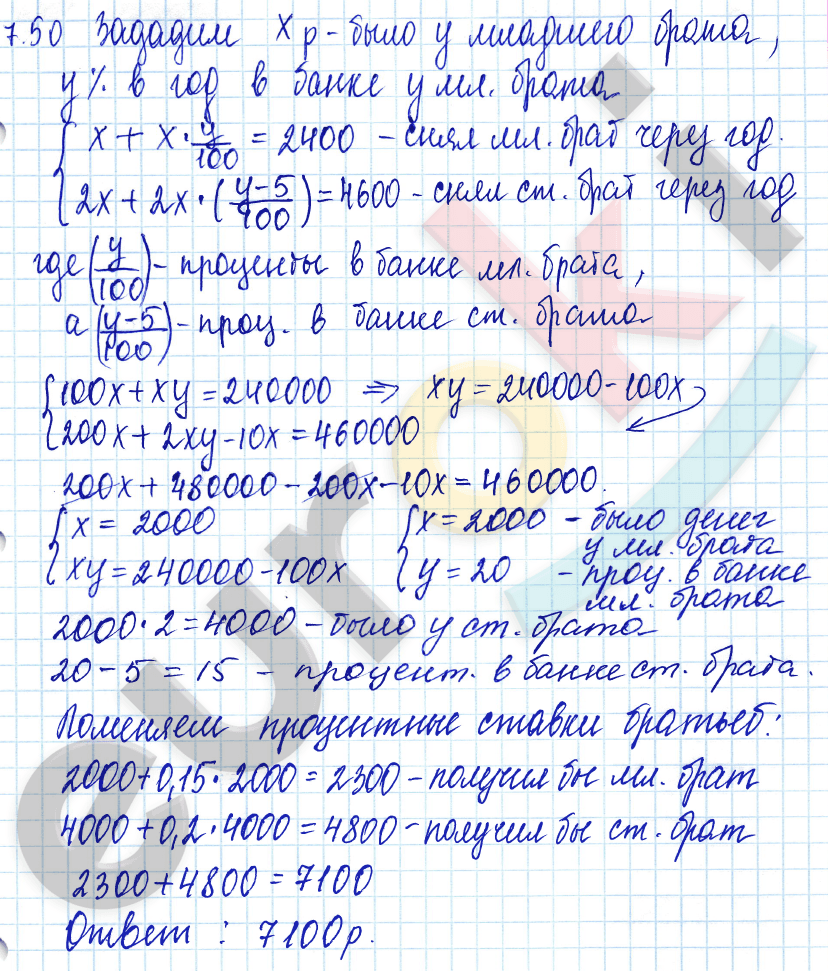 7.50 Зададим x р - было у младшего брата,
y % в год в банке у мл. брата
{ x + x · y/100 = 2400 - снял мл. брат через год.
{ 2x + 2x · (y-5/100) = 4600 - снял ст. брат через год
где (y/100) - проценты в банке мл. брата,
а (y-5/100) - проц. в банке ст. брата
{ 100x + xy = 240000 ⇒ xy = 240000 - 100x
{ 200x + 2xy - 10x = 460000
200x + 480000 - 200x - 10x = 460000.
{ x = 2000 { x = 2000 - было денег у мл. брата
{ xy = 240000 - 100x { y = 20 - проц. в банке мл. брата
2000 · 2 = 4000 - было у ст. брата
20 - 5 = 15 - процент. в банке ст. брата.
Поменяем процентные ставки братьев:
2000 + 0,15 · 2000 = 2300 - получил бы мл. брат
4000 + 0,2 · 4000 = 4800 - получил бы ст. брат
2300 + 4800 = 7100
Ответ : 7100 р.
euroki